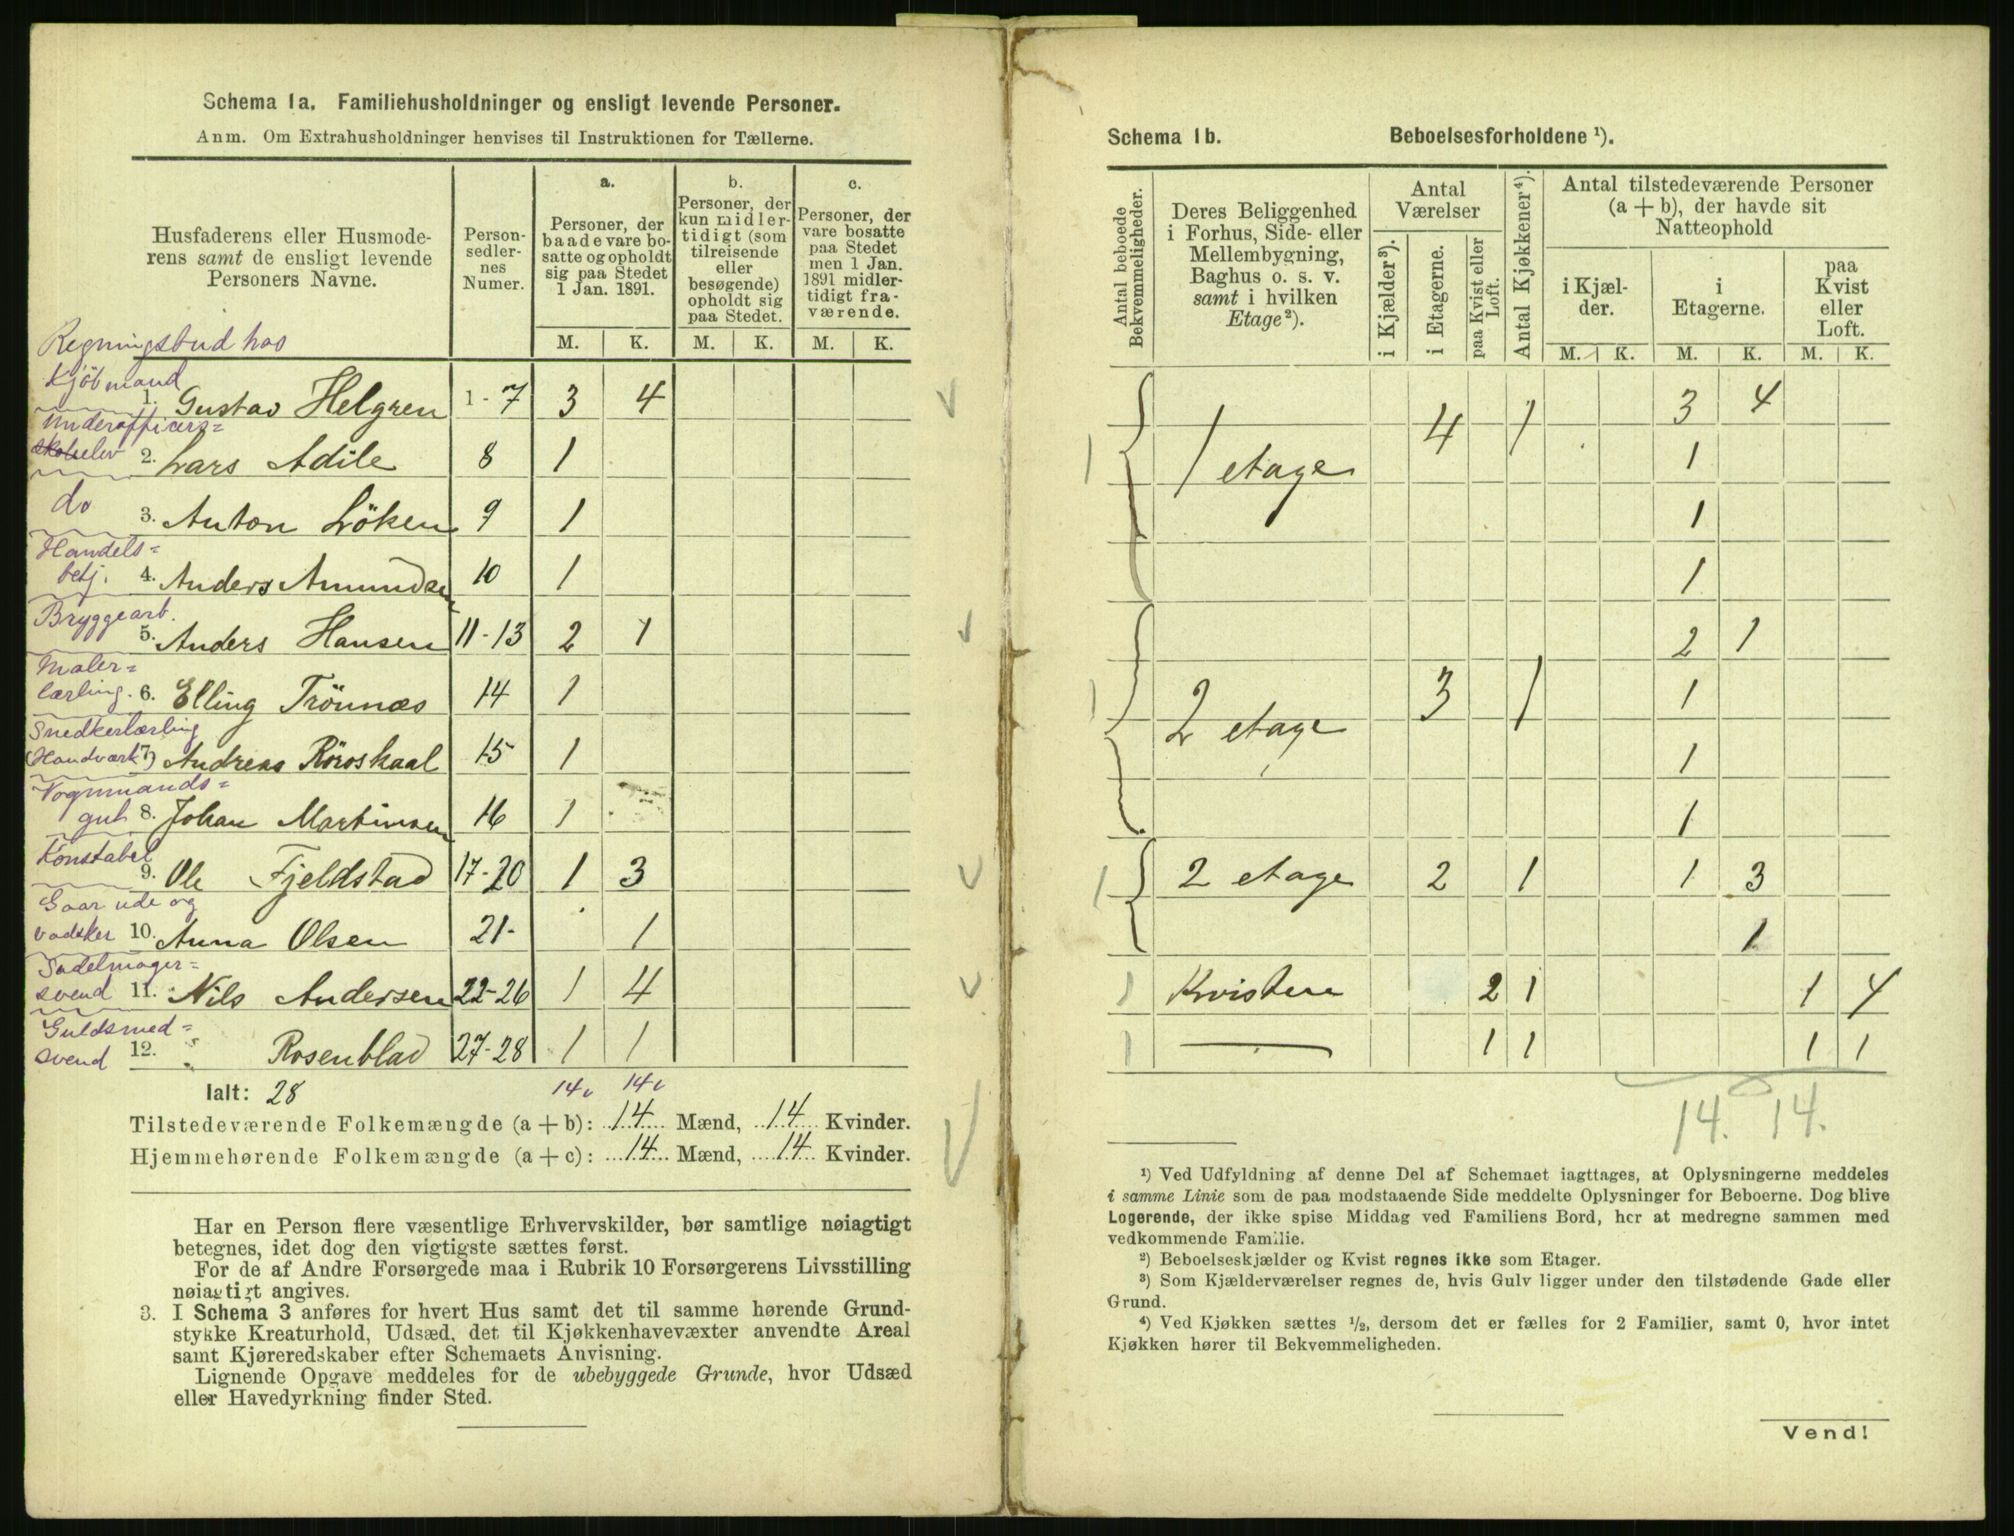 Schema 1a. Familiehusholdninger og ensligt levende Personer.
Anm. Om Extrahusholdninger henvises til Instruktionen for Tællerne.
Husfaderens eller Husmode-
rens samt de ensligt levende
Personers Navne.
Person-
sedler-
nes
Numer.
a.
Personer, der
baade vare bo-
satte og opholdt
sig paa Stedet
1 Jan. 1891.
b.
Personer, der
kun midler-
tidigt (som
tilreisende
eller
besøgende)
opholdt sig
paa Stedet.
c.
Personer, der
vare bosatte
paa Stedet
men 1 Jan.
1891 midler-
tidigt fra-
værende.
M. K. M. K. M. K.
Regningsbud hos
Kjöbmand
1. Gustav Helgren 1-7 3 4
Underofficers=
skoleelev 2. Lars Adile 8 1
do 3. Anton Löken 9 1
Handels=
betj. 4. Anders Amundsen 10 1
Bryggearb.
5. Anders Hansen 11-13 2 1
Maler=
lærling. 6. Elling Trönnæs 14 1
Snedkerlærling
(Handværk) 7. Andreas Röroskaal 15 1
Vognmands=
gut 8. Johan Martinsen 16 1
Konstabel
9. Ole Fjeldstad 17-20 1 3
Gaar ude og
vadsker 10. Anna Olsen 21- 1
Sadelmager=
svend 11. Nils Andersen 22-26 1 4
Guldsmed=
svend 12. Rosenblad 27-28 1 1
Ialt: 28 14 14
Tilstedeværende Folkemængde (a + b): 14 Mænd, 14 Kvinder.
Hjemmehørende Folkemængde (a + c): 14 Mænd, 14 Kvinder.
Har en Person flere væsentlige Erhvervskilder, bør samtlige nøiagtigt
betegnes, idet dog den vigtigste sættes først.
For de af Andre Forsørgede maa i Rubrik 10 Forsørgerens Livsstilling
nøiagtigt angives.
3. I Schema 3 anføres for hvert Hus samt det til samme hørende Grund-
stykke Kreaturhold, Udsæd, det til Kjøkkenhavevæxter anvendte Areal
samt Kjøreredskaber efter Schemaets Anvisning.
Lignende Opgave meddeles for de ubebyggede Grunde, hvor Udsæd
eller Havedyrkning finder Sted.
Schema 1b. Beboelsesforholdene ¹).
Antal beboede
Bekvemmeligheder.
Deres Beliggenhed
i Forhus, Side- eller
Mellembygning,
Baghus o. s. v.
samt i hvilken
Etage²).
Antal
Værelser
i Kjælder³).
i Etagerne.
paa Kvist eller
Loft.
Antal Kjøkkener⁴).
Antal tilstedeværende Personer
(a + b), der havde sit
Natteophold
i Kjæl-
der.
i
Etagerne.
paa
Kvist
eller
Loft.
M. K. M. K. M. K.
1 1 etage 4 1 3 4
1
1
1
1 2 etage 3 1 2 1
1
1
1
1 2 etage 2 1 1 3
1
1 Kvisten 2 1 1 4
1 — 1 1 1 1
14. 14.
¹) Ved Udfyldning af denne Del af Schemaet iagttages, at Oplysningerne meddeles
i samme Linie som de paa modstaaende Side meddelte Oplysninger for Beboerne. Dog blive
Logerende, der ikke spise Middag ved Familiens Bord, her at medregne sammen med
vedkommende Familie.
²) Beboelseskjælder og Kvist regnes ikke som Etager.
³) Som Kjælderværelser regnes de, hvis Gulv ligger under den tilstødende Gade eller
Grund.
⁴) Ved Kjøkken sættes ½, dersom det er fælles for 2 Familier, samt 0, hvor intet
Kjøkken hører til Bekvemmeligheden.
Vend!